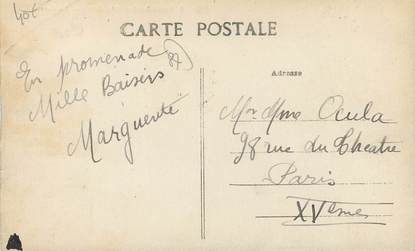 40€
CARTE POSTALE
En promenade 87
Mille Baisers
Marguerite
Adresse
Mr Mme Aula
98 rue du Theatre
Paris
XVeme